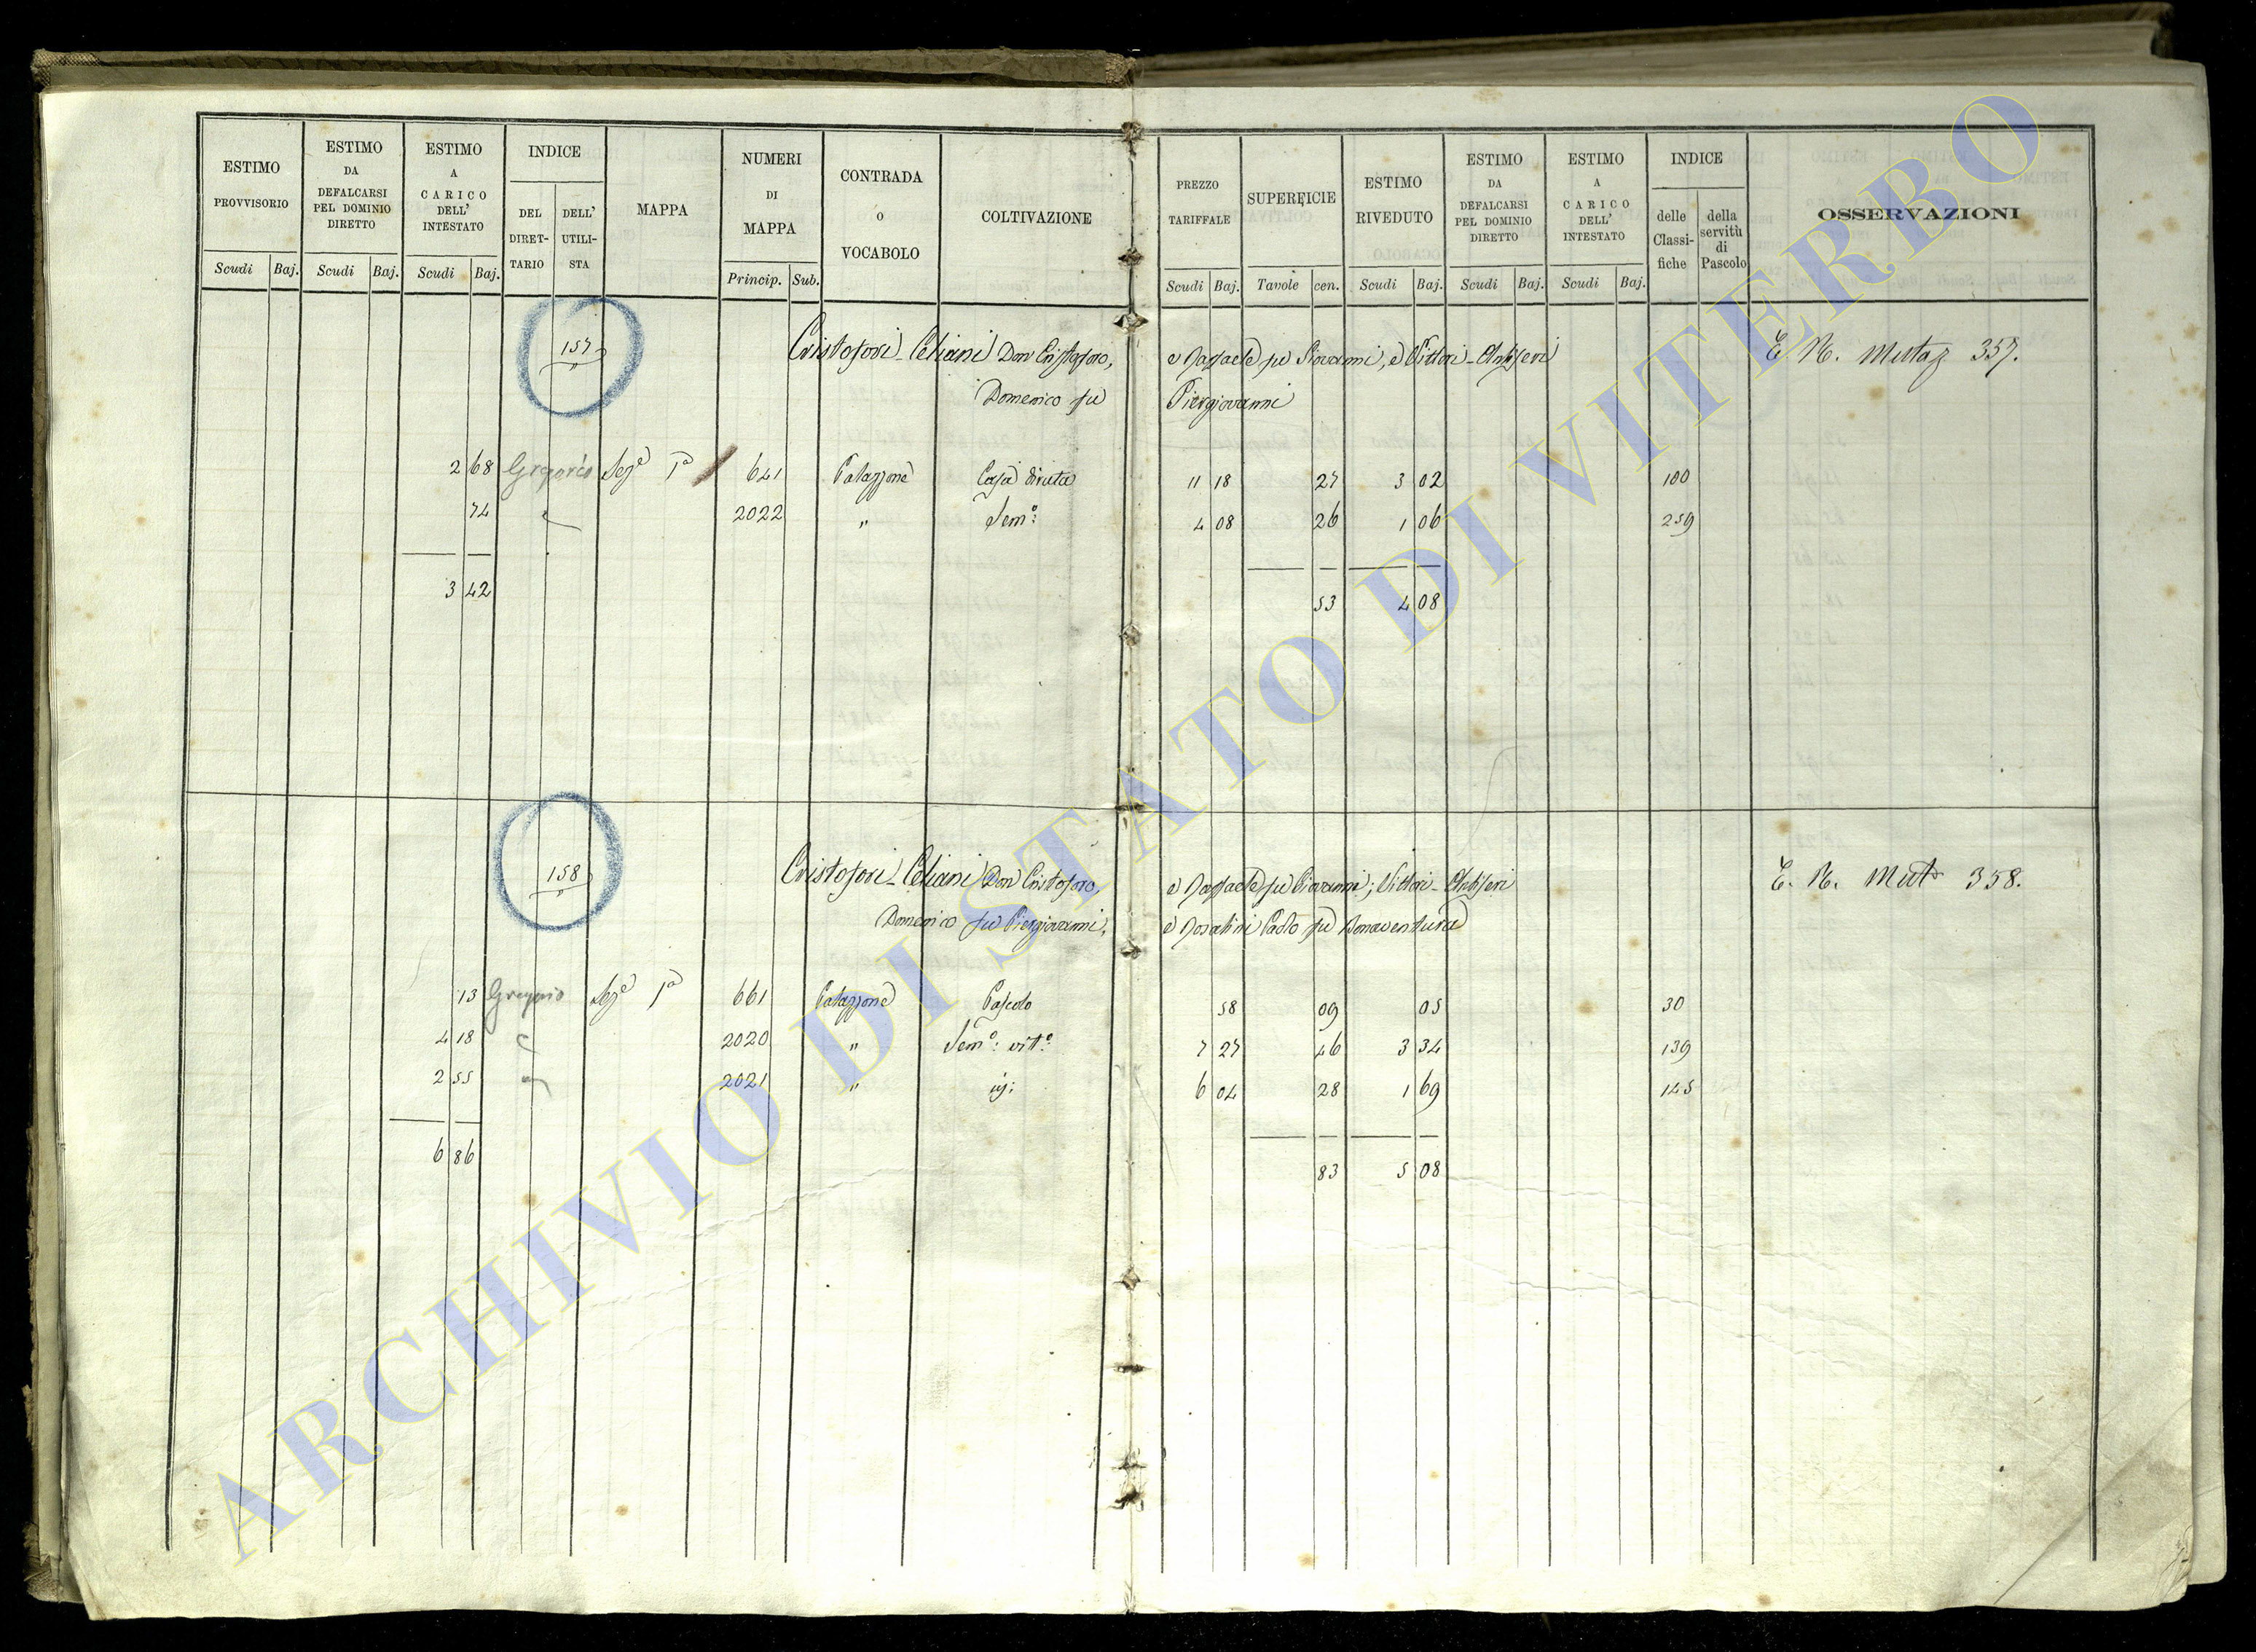 ESTIMO PROVVISORIO
Scudi Baj.
ESTIMO DA DEFALCARSI PEL DOMINIO DIRETTO
Scudi Baj.
ESTIMO A CARICO DELL' INTESTATO
Scudi Baj.
INDICE
DEL DIRET- TARIO
DELL' UTILI- STA
MAPPA
NUMERI DI MAPPA
Princip. Sub.
CONTRADA O VOCABOLO
COLTIVAZIONE
PREZZO TARIFFALE
Scudi Baj.
SUPERFICIE
Tavole cen.
ESTIMO RIVEDUTO
Scudi Baj.
ESTIMO DA DEFALCARSI PEL DOMINIO DIRETTO
Scudi Baj.
ESTIMO A CARICO DELL' INTESTATO
Scudi Baj.
INDICE
delle Classi- fiche
della servitù di Pascolo
OSSERVAZIONI
157 Cristofori-Celiani Don Cristoforo, e Raffaele fu Giovanni, e Vittori-Antiseri E. N. Mutaz 357.
Domenico fu Piergiovanni
2 68 Gregorio Sez.e 1a 641 Palazzone Casa diruta 11 18 27 3 02 100
74 " 2022 " Sem.o: 4 08 26 1 06 259
3 42 53 4 08
158 Cristofori-Celiani Don Cristoforo, e Raffaele fu Giovanni; Vittori-Antiseri E. N. Mut 358.
Domenico fu Piergiovanni, e Rosatini Paolo fu Bonaventura
13 Gregorio Sez.e 1a 661 Palazzone Pascolo 58 09 05 30
4 18 " 2020 " Sem.o: vit.o: 7 27 46 3 34 139
2 55 " 2021 " id: 6 04 28 1 69 145
6 86 83 5 08
ARCHIVIO DI STATO DI VITERBO